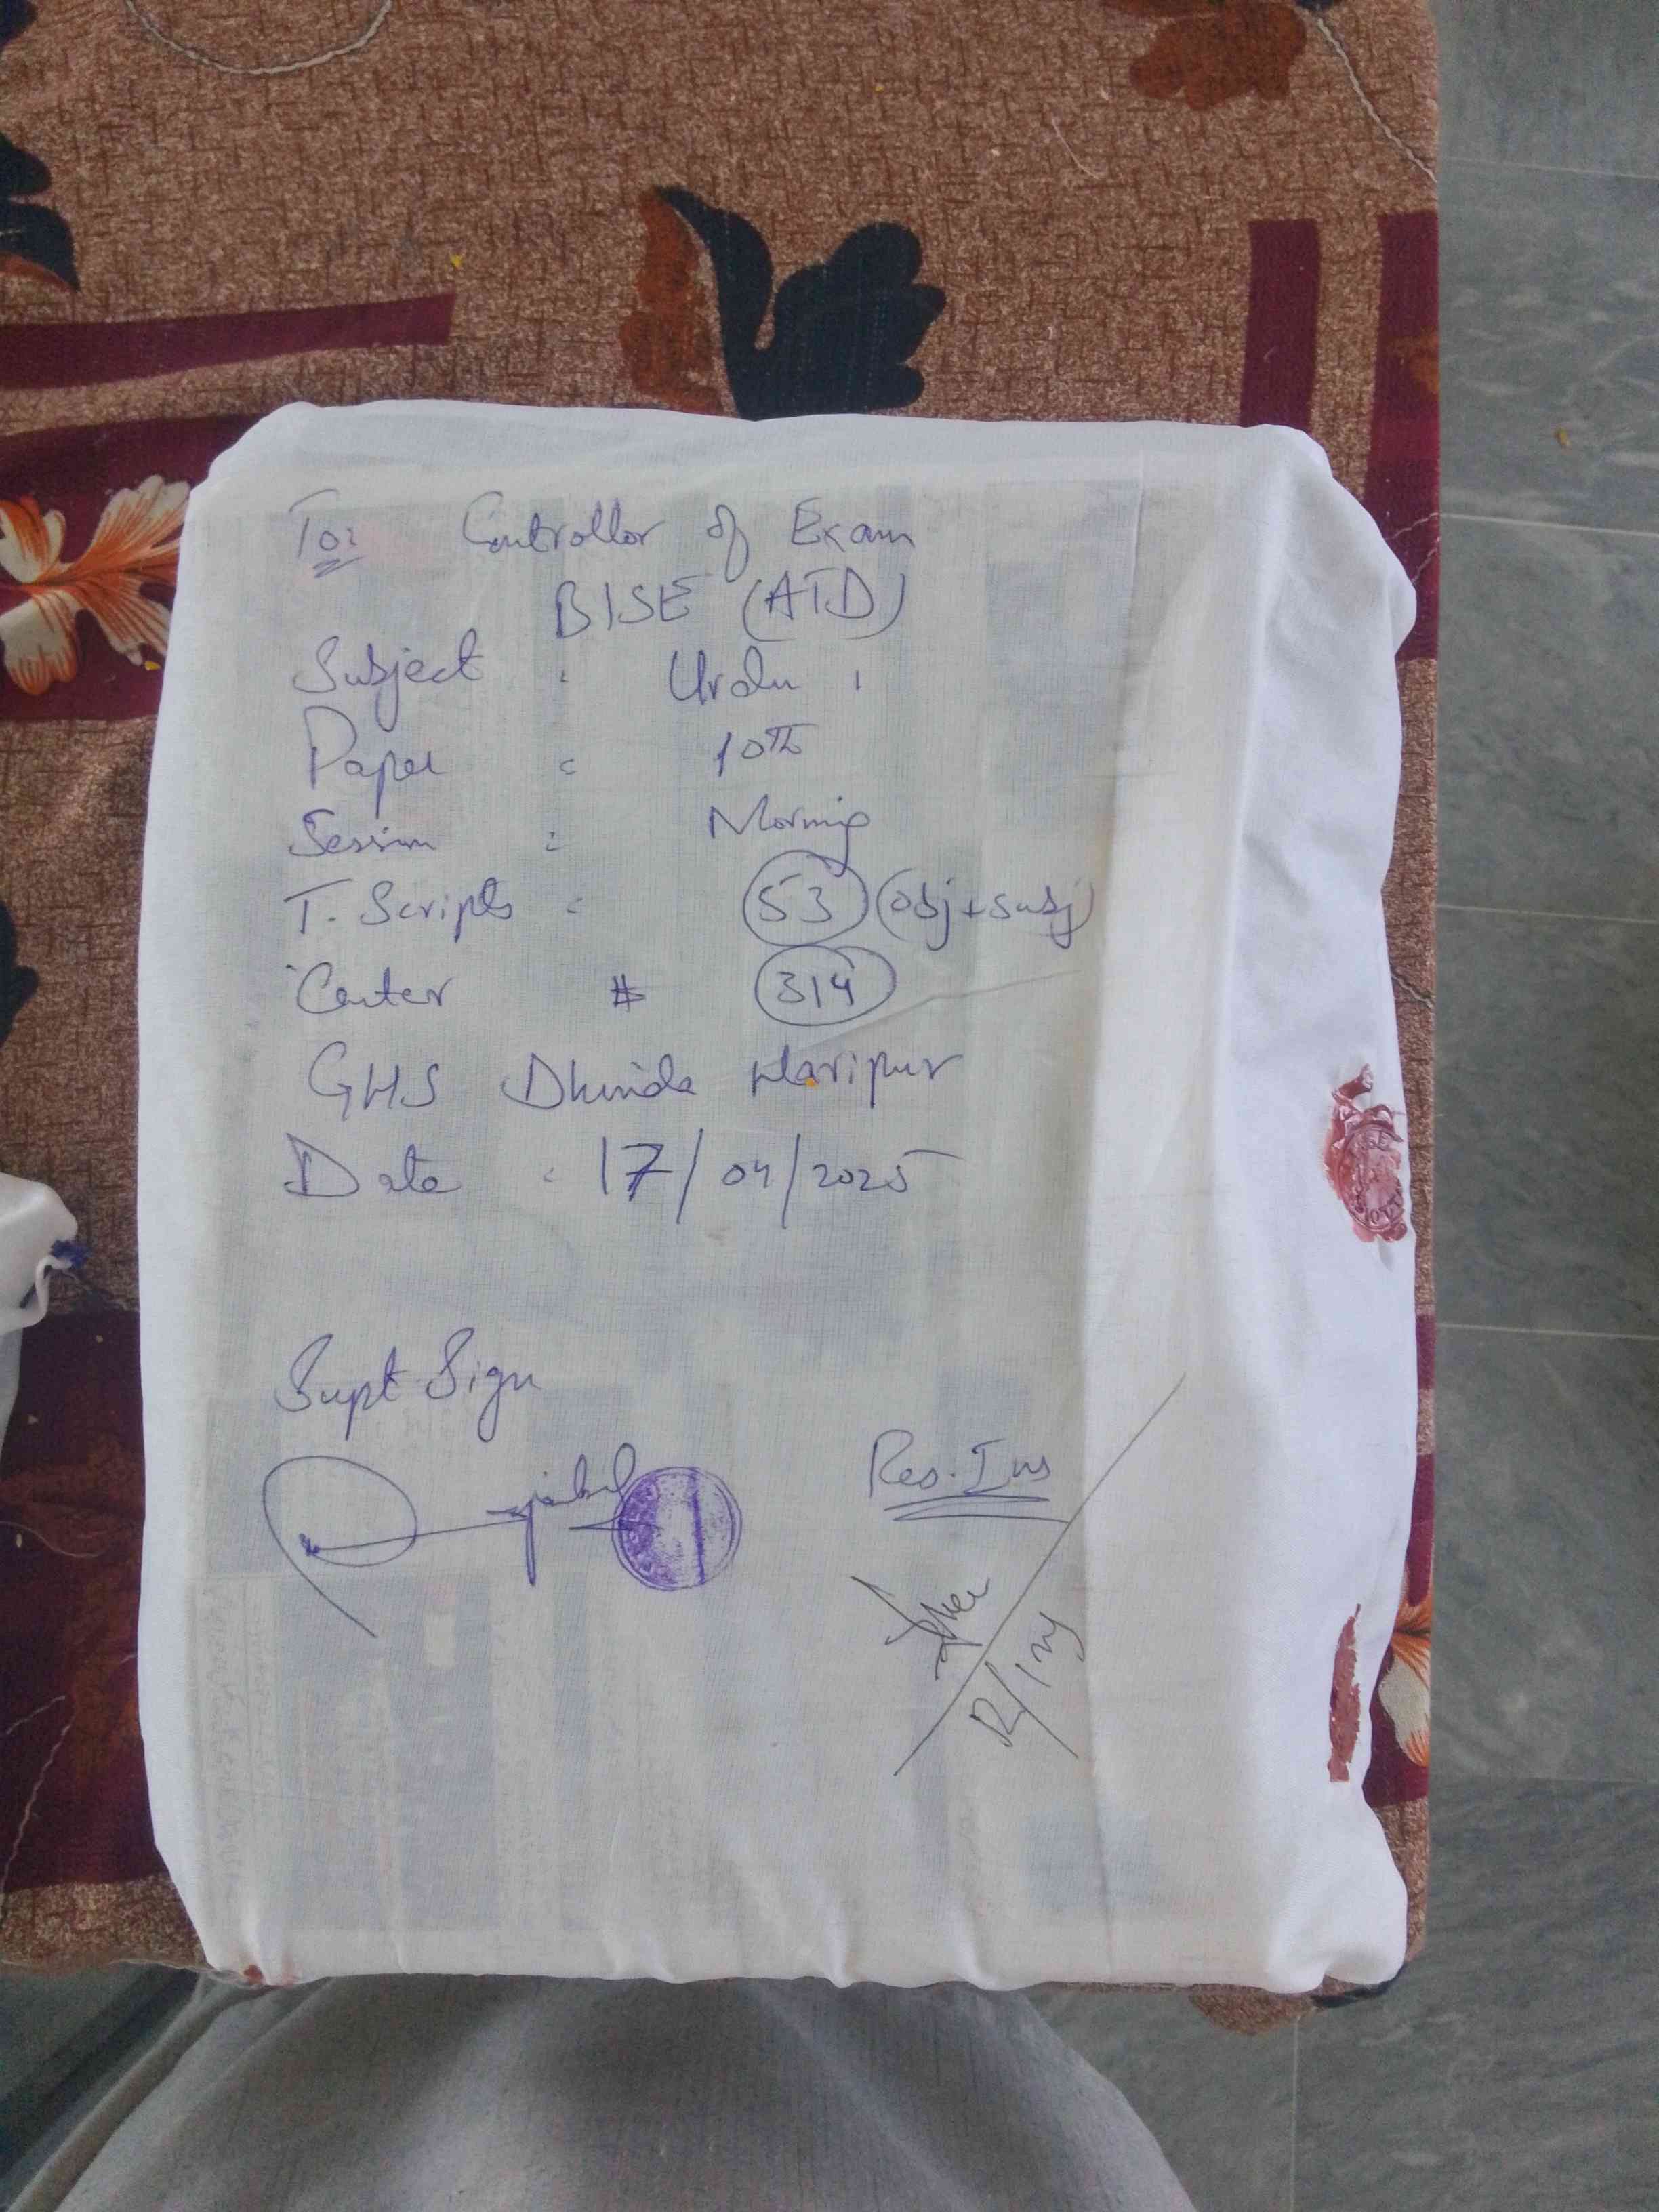 To:
Controllor of Exam
BISE (ATD)
Subject : Urdu
Paper : 10th
Session : Morning
T. Scripts : 53 (obj + subj)
Center # 314
GHS Dhinda Haripur
Date : 17/04/2025
Supt Sign
Res. Ins
R/Ins